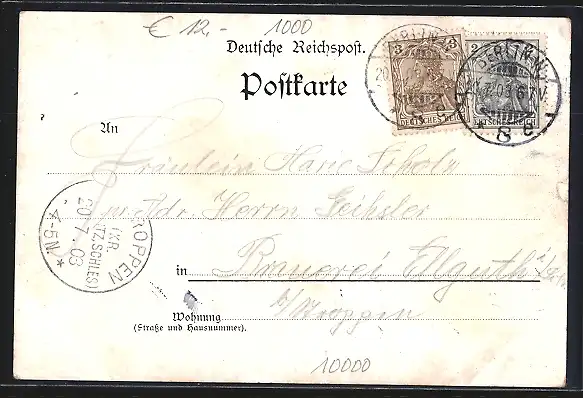 € 12,- 1000
Deutsche Reichspost.
Postkarte
3 3
DEUTSCHES REICH
2
DEUTSCHES REICH
BERLIN N.W.
20. 7. 03 6-7V.
An
Fräulein Marie Scholz
pr. Adr. Herrn Geihsler
in Brauerei Ellguth
b/Stroppen
Wohnung
(Straße und Hausnummer).
STROPPEN
(KR. TZ.SCHLES)
20.7.03
4-5N*
10000